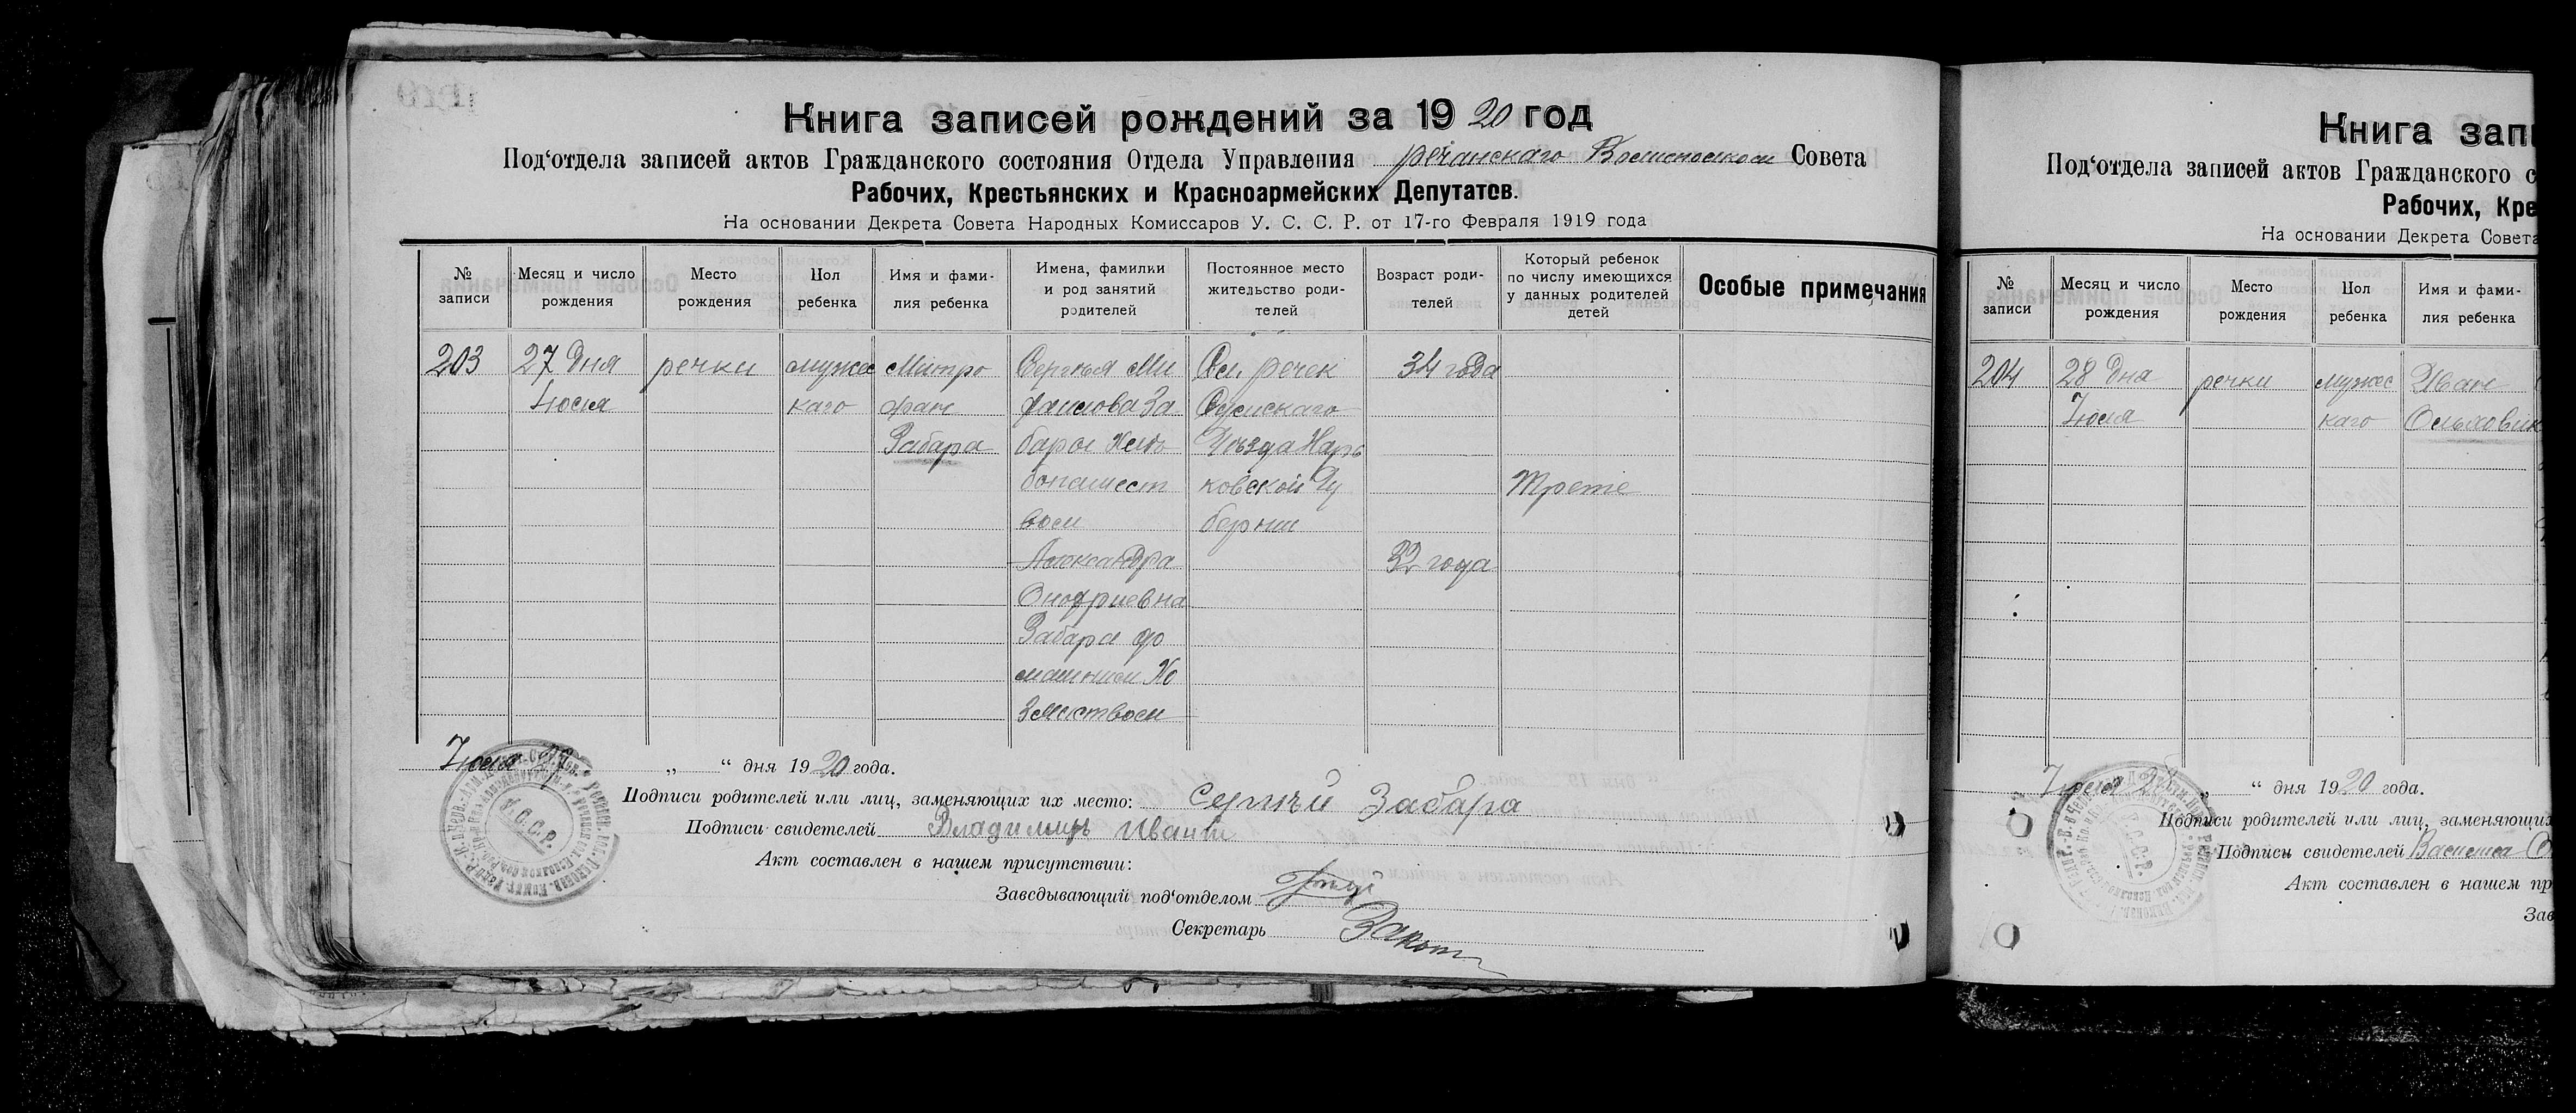 Книга записей рождений за 1920 год
Под‘отдела записей актов Гражданского состояния Отдела Управления речанскаго Совета
Рабочих, Крестьянских и Красноармейских Депутатов.
На основании Декрета Совета Народных Комиссаров У. С. С. Р. от 17-го Февраля 1919 года
№ записи
Месяц и число рождения
Место рождения
Пол ребенка
Имя и фами-
лия ребенка
Имена, фамилки
и род занятий
родителей
Постоянное место
жительство роди-
телей
Возраст роди-
телей
Который ребенок
по числу имеющихся
у данных родителей
детей
Особые примечания
203
27 Дня
Июля
речки
мужес
каго
Митро
фан
Забара
Сергѣя Ми
фанова За
бара Хлѣ
бопашест
вом
Александра
Онофриевна
Забара до
машним Хо
зяиством
Сл. речек
Сумскаго
Уѣзда Харь
ковской Гу
бернии
34 года
32 года
Трете
Июля
„ “ дня 1920 года.
Подписи родителей или лиц, заменяющих их место: Сергѣй Забара
Подписи свидетелей Владимиръ
Акт составлен в нашем присутствии:
Заведывающий под‘отделом
Секретарь
У.С.С.Р.
Книга запи
Под‘отдела записей актов Гражданского с
Рабочих, Кре
На основании Декрета Совета
№ записи
Месяц и число
рождения
Место
рождения
Пол
ребенка
Имя и фами-
лия ребенка
204
28 Дня
Июля
речки
мужес
каго
Иван
Ольховик
Июля 28
„ “ дня 1920 года.
Подписи родителей или лиц, заменяющих
Подписи свидетелей Василиса
Акт составлен в нашем пр
Зав